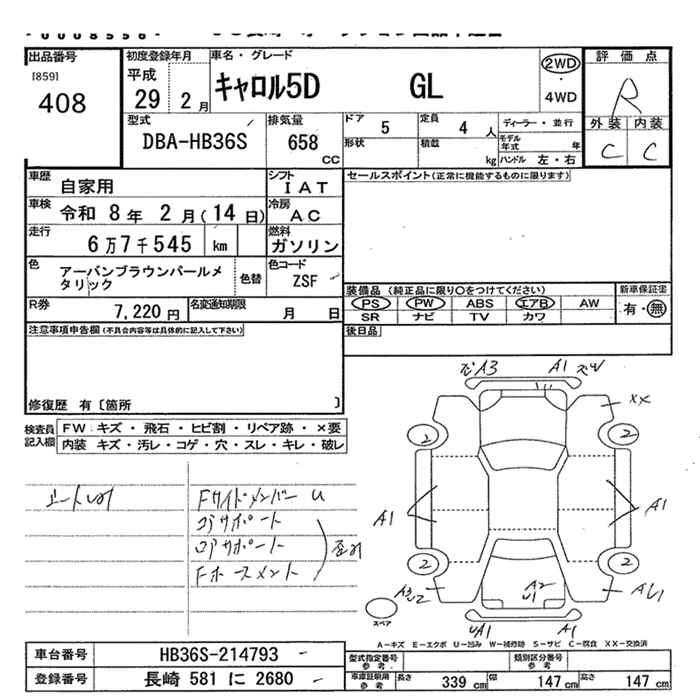 出品番号
[859]
408
初度登録年月
平成
29 2 月
車名・グレード
キャロル5D GL
2WD
・
4WD
評価点
R
外装 内装
C C
型式
DBA-HB36S
排気量
658
CC
ドア
5
定員
4 人
形状
積載
kg
ディーラー・並行
モデル
年式
年
ハンドル 左・右
車歴
自家用
シフト
IAT
セールスポイント(正常に機能するものに限ります)
車検
令和 8 年 2 月(14 日)
冷房
AC
走行
6万7千545 km
燃料
ガソリン
色
アーバンブラウンパールメ
タリック
色替
色コード
ZSF
装備品 (純正品に限り○をつけてください)
PS PW ABS エアB AW
SR ナビ TV カワ
新車保証書
有・無
R券
7,220 円
名変通知期限
月 日
後日品
注意事項申告欄(不具合内容等は具体的に記入して下さい)
修復歴 有〔箇所 〕
検査員
記入欄
FW: キズ・飛石・ヒビ割・リペア跡・×要
内装 キズ・汚レ・コゲ・穴・スレ・キレ・破レ
Fサイドメンバー U
コアサポート
ロアサポート
Fホースメント
A3
A1
XX
2
2
A1
A1
2
2
A2
U1
UA1
A1
スペア
A−キズ E−エクボ U−凹み W−補修跡 S−サビ C−腐食 XX−交換済
車台番号
HB36S-214793
登録番号
長崎 581 に 2680
型式指定番号
参考
類別区分番号
参考
車庫証明用
参考
長さ
339 cm
幅
147 cm
高さ
147 cm